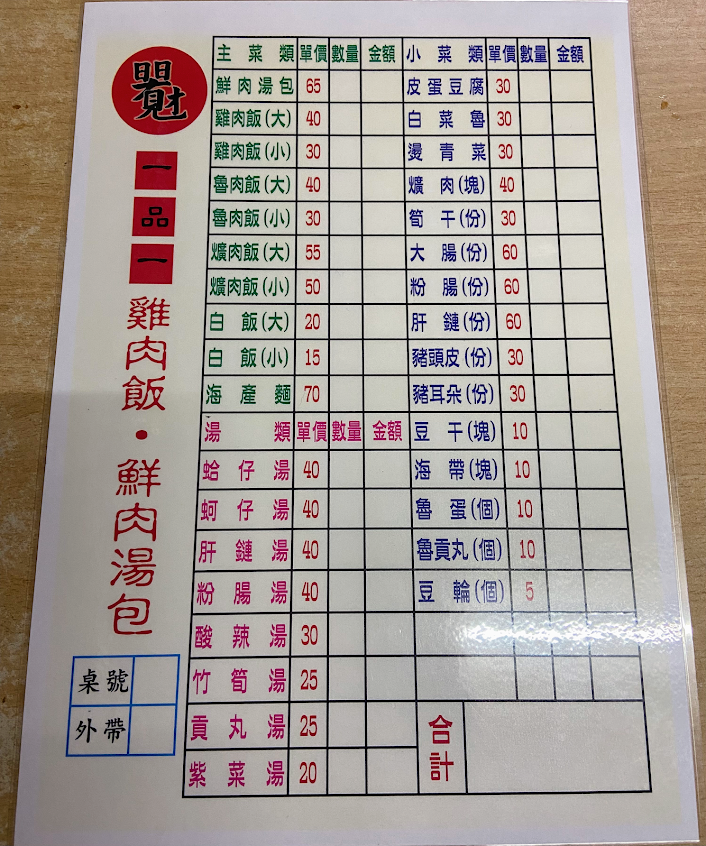 一
品
一
雞肉飯・鮮肉湯包
桌號
外帶
主菜類 單價 數量 金額 小菜類 單價 數量 金額
鮮肉湯包 65 皮蛋豆腐 30
雞肉飯(大) 40 白菜魯 30
雞肉飯(小) 30 燙青菜 30
魯肉飯(大) 40 爌肉(塊) 40
魯肉飯(小) 30 筍干(份) 30
爌肉飯(大) 55 大腸(份) 60
爌肉飯(小) 50 粉腸(份) 60
白飯(大) 20 肝鏈(份) 60
白飯(小) 15 豬頭皮(份) 30
海產麵 70 豬耳朵(份) 30
湯類 單價 數量 金額 豆干(塊) 10
蛤仔湯 40 海帶(塊) 10
蚵仔湯 40 魯蛋(個) 10
肝鏈湯 40 魯貢丸(個) 10
粉腸湯 40 豆輪(個) 5
酸辣湯 30
竹筍湯 25
貢丸湯 25 合計
紫菜湯 20